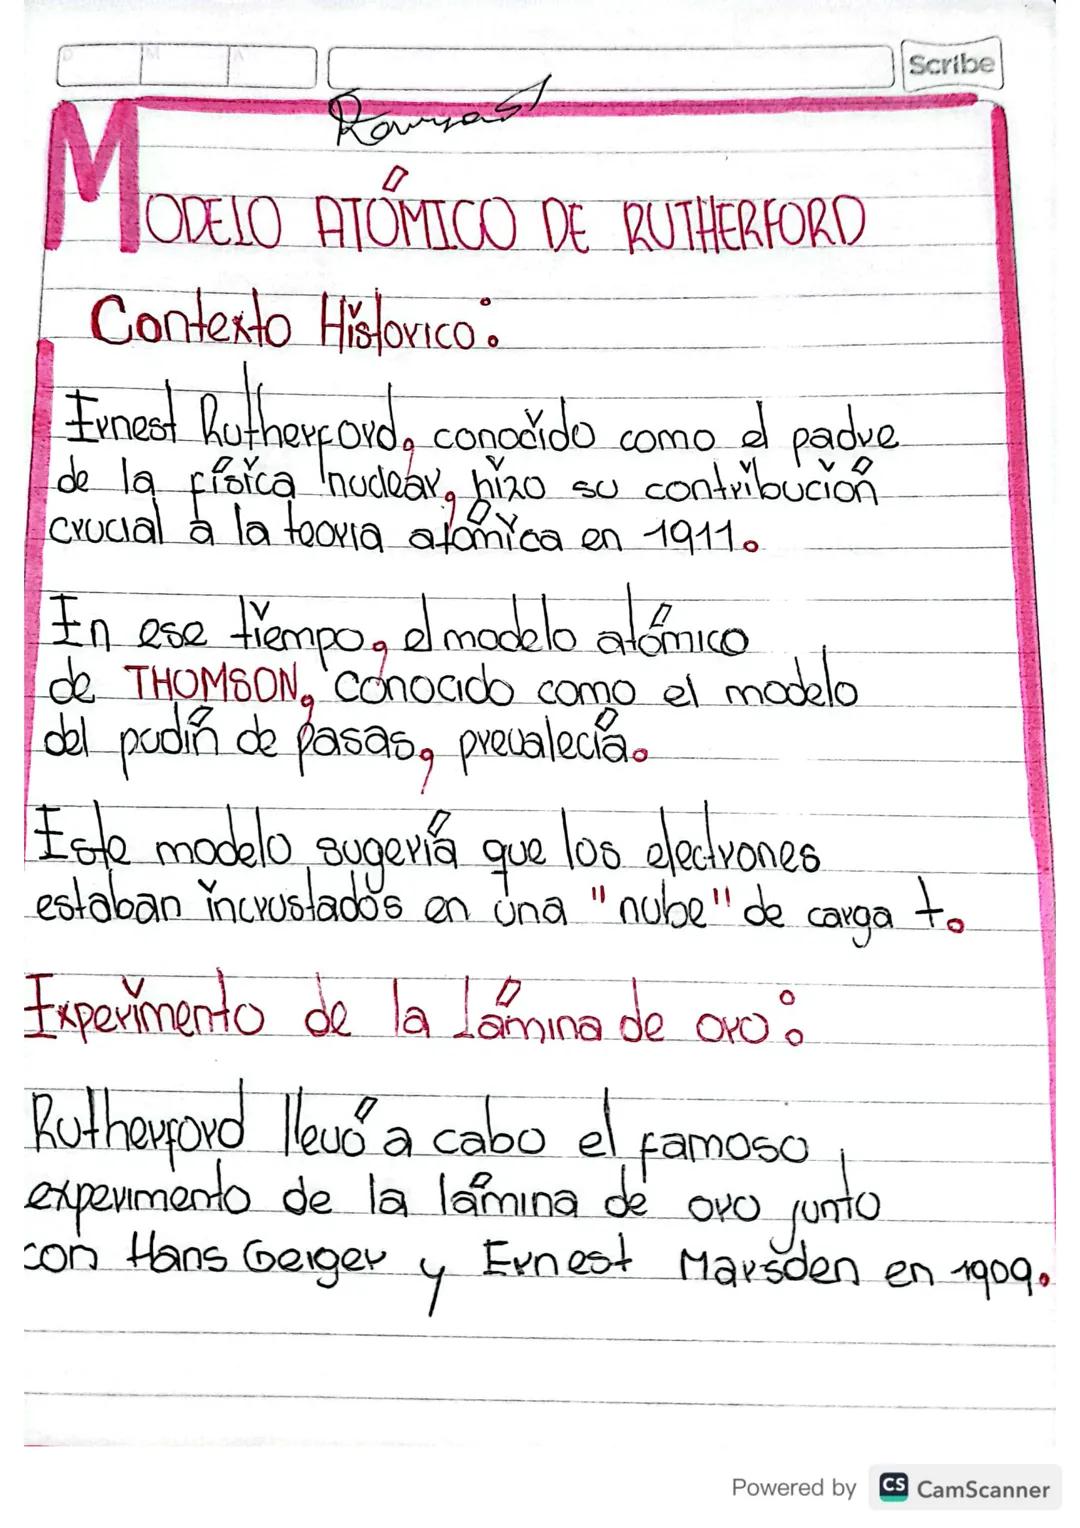 D M A
Scribe
MODELO ATÓMICO DE RUTHERFORD
Contexto Historico:
Ernest Rutherford, conocido como el padre
de la física nuclear, hizo su contribución
crucial a la teoria atómica en 1911.
En ese tiempo, el modelo atómico
de THOMSON, conocido como el modelo
del pudín de pasas, prevalecía.
Este modelo sugería que los electrones
estaban incrustados en una "nube" de carga +.
Experimento de la Lámina de oro:
Rutherford llevó a cabo el famoso
experimento de la lámina de oro junto
con Hans Geiger y Ernest Marsden en 1909.
Powered by CS CamScanner